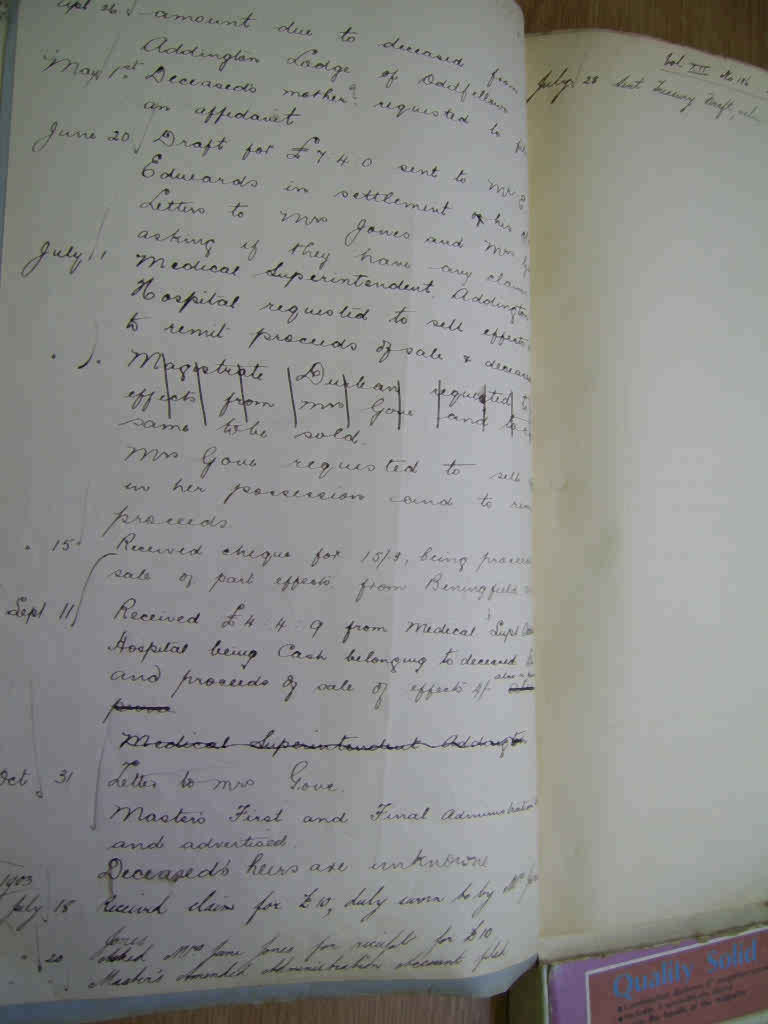 Apl 26 amount due to deceased from
Addington Lodge of Oddfellows
May 1st Deceased's mother requested to
an affidavit
June 20 Draft for £7 4 0 sent to Mr
Edwards in settlement of her
Letters to Mrs Jones and Mrs
asking if they have any claim
July 1 Medical Superintendent, Addington
Hospital requested to sell effects
to remit proceeds of sale &
" ". Magistrate Durban requested to
effects from Mrs Gove and to
same to be sold.
Mrs Gove requested to sell
in her possession and to
proceeds.
" 15 Received cheque for 15/9, being
sale of part effects from Beningfield
Sept 11 Received £4 : 4 : 9 from Medical Supt
Hospital being Cash belonging to deceased
and proceeds of sale of effects 4/-
Medical Superintendent Addington
Oct 31 Letter to Mrs Gove.
Master's First and Final Administration
and advertised.
Deceased's heirs are unknown
1903
July 18 Received claim for £10, duly sworn to by Mrs
Jones
" 20 Asked Mrs Jane Jones for receipt for £10
Master's Amended Administration Account filed
Vol. XII No 186
July 28 Sent Treasury Draft,
Quality Solid